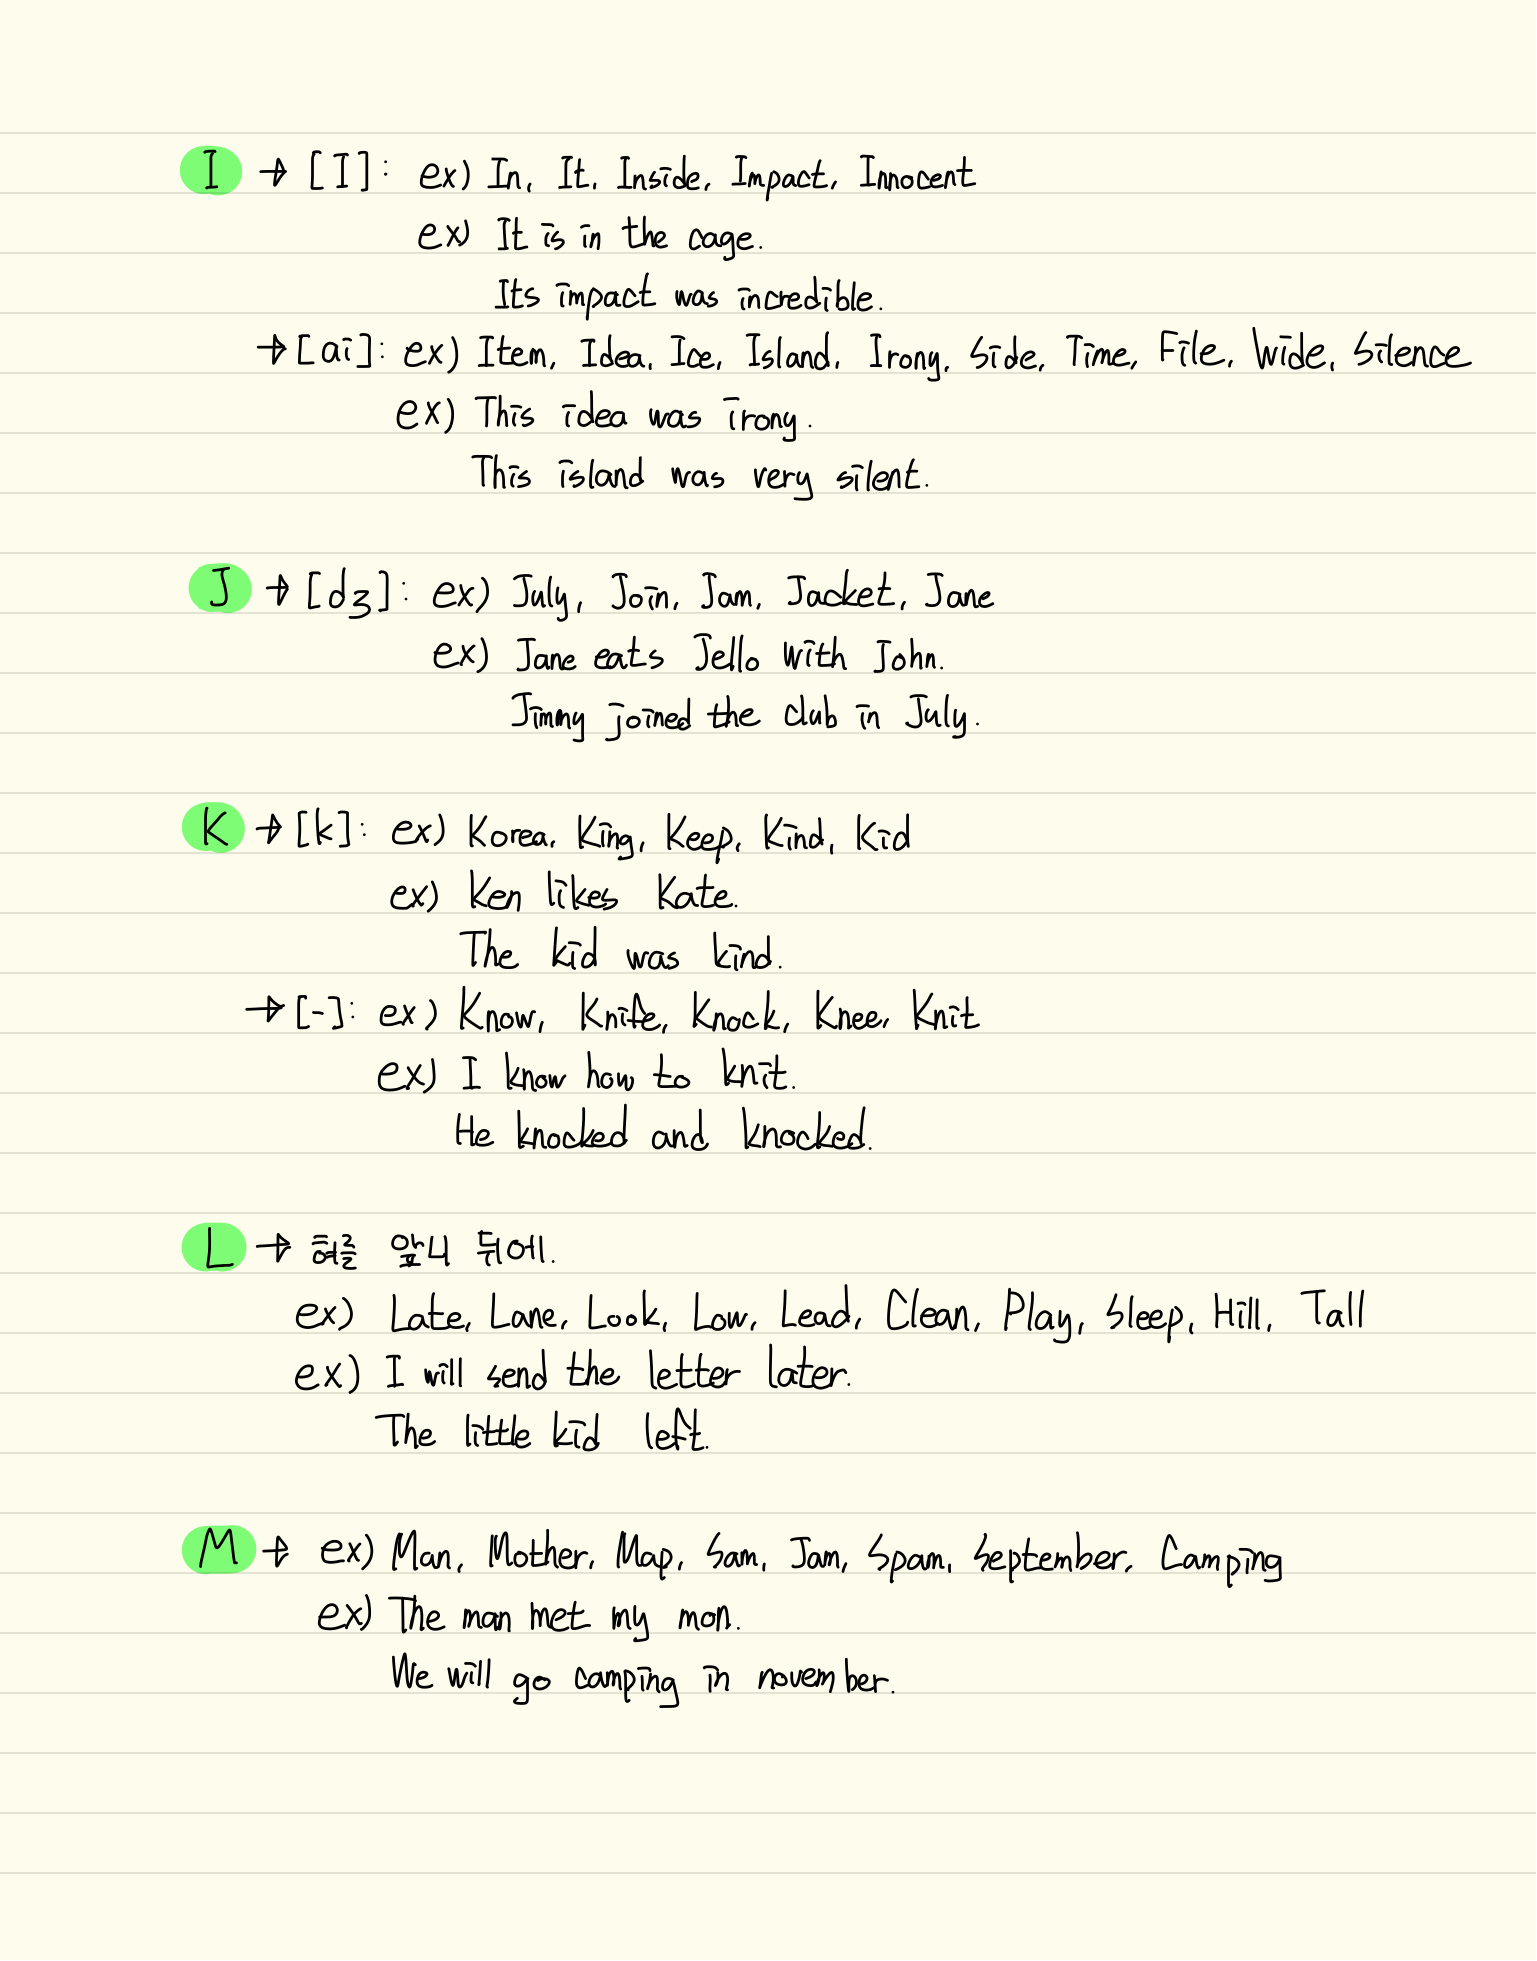 I → [I]: ex) In, It, Inside, Impact, Innocent
ex) It is in the cage.
Its impact was incredible.
→ [ai]: ex) Item, Idea, Ice, Island, Irony, Side, Time, File, Wide, Silence
ex) This idea was irony.
This island was very silent.
J → [dʒ]: ex) July, Join, Jam, Jacket, Jane
ex) Jane eats Jello with John.
Jimmy joined the club in July.
K → [k]: ex) Korea, King, Keep, Kind, Kid
ex) Ken likes Kate.
The kid was kind.
→ [-]: ex) Know, Knife, Knock, Knee, Knit
ex) I know how to knit.
He knocked and knocked.
L → 혀를 앞니 뒤에.
ex) Late, Lane, Look, Low, Lead, Clean, Play, Sleep, Hill, Tall
ex) I will send the letter later.
The little kid left.
M → ex) Man, Mother, Map, Sam, Jam, Spam, September, Camping
ex) The man met my mon.
We will go camping in november.